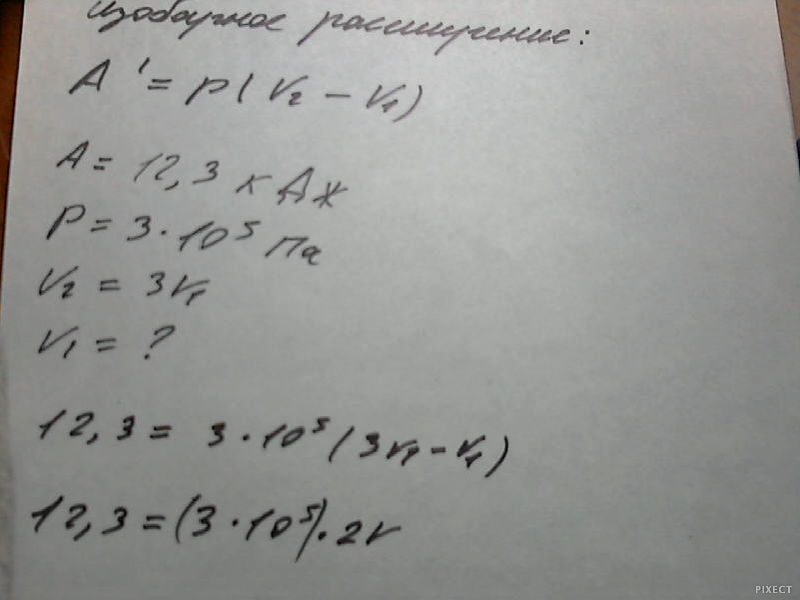 изобарное расширение:
A' = p(V₂ - V₁)
A = 12,3 кДж
P = 3·10⁵ Па
V₂ = 3V₁
V₁ = ?
12,3 = 3·10⁵(3V₁-V₁)
12,3=(3·10⁵)·2V
PIXECT